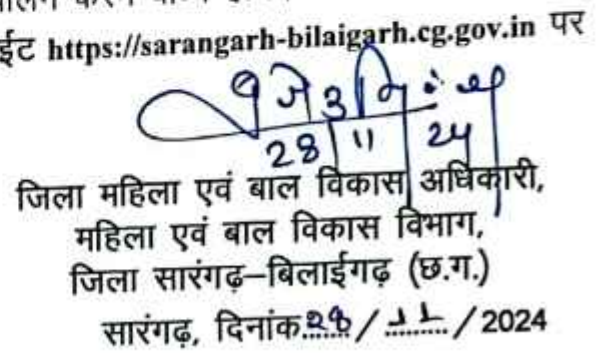 करने
ईट https://sarangarh-bilaigarh.cg.gov.in पर
28/11/24
जिला महिला एवं बाल विकास अधिकारी,
महिला एवं बाल विकास विभाग,
जिला सारंगढ़–बिलाईगढ़ (छ.ग.)
सारंगढ़, दिनांक.२८/ ११ /2024